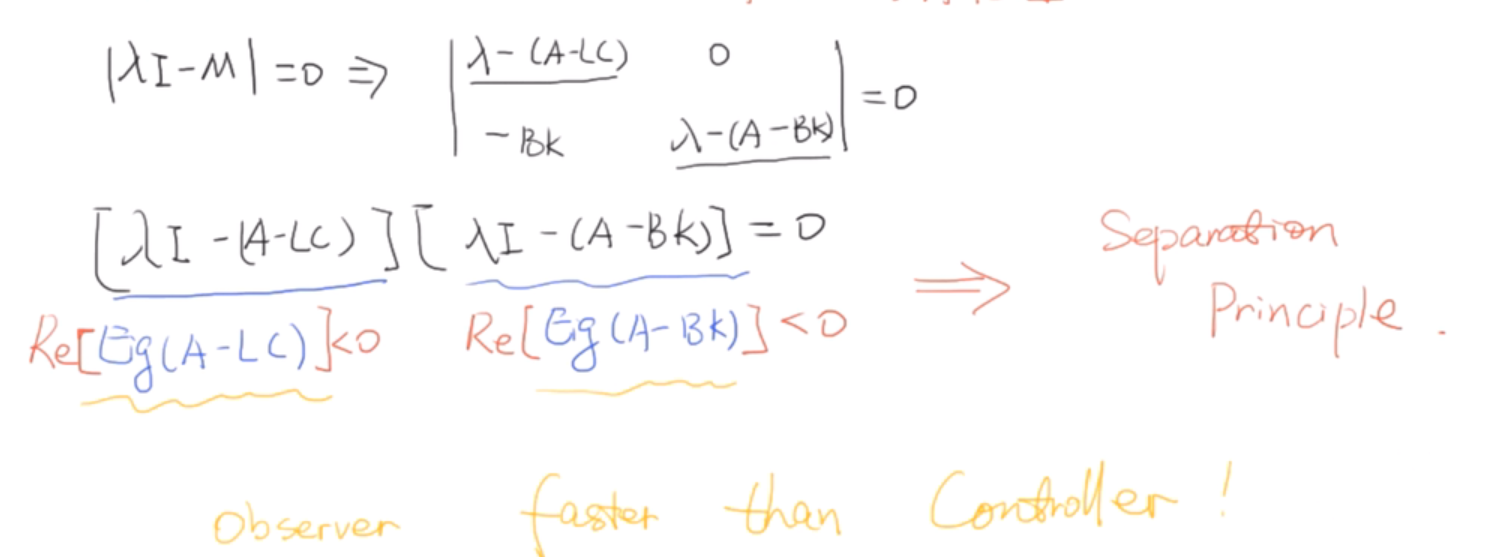 |λI-M|=0 ⇒ | λ-(A-LC) 0 |
| -BK λ-(A-BK) | =0
[λI-(A-LC)][λI-(A-BK)]=0 ⇒ Separation
Re[Eg(A-LC)]<0 Re[Eg(A-BK)]<0 Principle.
Observer faster than Controller!